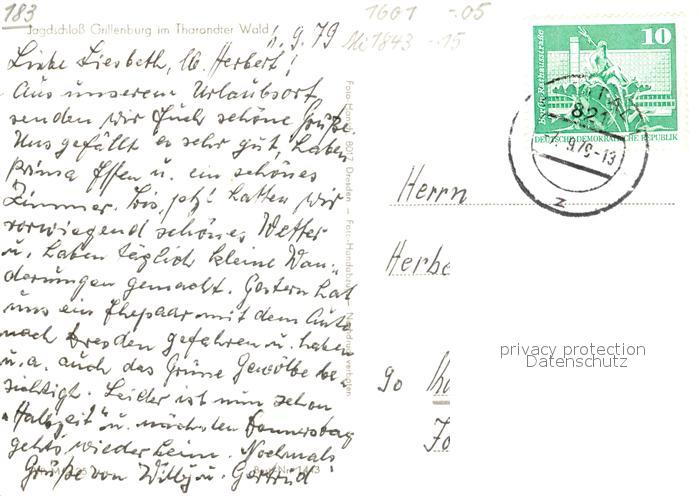 183
1601 -.05
Mi 1843 -.15
Jagdschloß Grillenburg im Tharandter Wald
11.9.79
Liebe Liesbeth, lb. Herbert!
Aus unserem Urlaubsort
senden wir Euch schöne Grüße
Uns gefällt es sehr gut, haben
Prima Essen u. ein schönes
Zimmer. Bis jetzt hatten wir
vorwiegend schönes Wetter
u. haben täglich kleine Wan-
derungen gemacht. Gestern hat
uns ein Ehepaar mit dem Auto
nach Dresden gefahren u. haben
u.a. auch das Grüne Gewölbe be-
sichtigt. Leider ist nun schon
"Halbzeit" u. nächsten Donnerstag
gehts wieder heim. Nochmals
Grüße von Willy u. Gertrud
8027 Dresden
10
Berlin, Rathausstraße
DEUTSCHE DEMOKRATISCHE REPUBLIK
821
9.79-13
z
Herrn
Herbe
90
privacy protection
Datenschutz